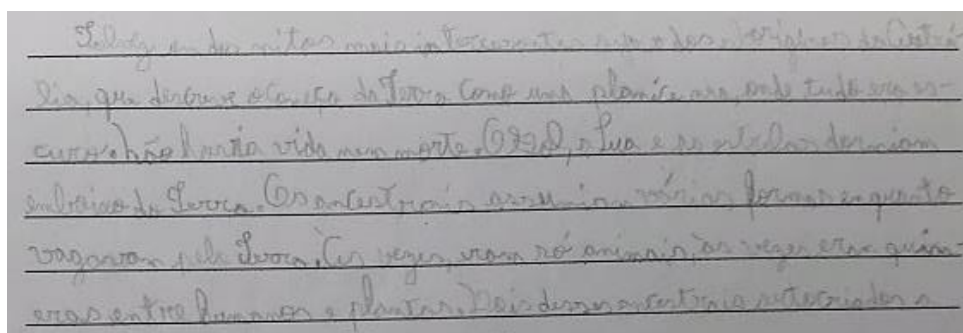 Talvez um dos mitos mais interessantes seja o dos aborígines da Austrá-
lia, que descreve o começo da Terra como uma planície nua, onde tudo era es-
curo e não havia vida nem morte. O Sol, a Lua e as estrelas dormiam
embaixo da Terra. Os ancestrais assumiam várias formas enquanto
vagavam pela Terra. Às vezes, eram só animais, às vezes eram quim-
eras entre humanos e plantas. Dois desses ancestrais autocriados a